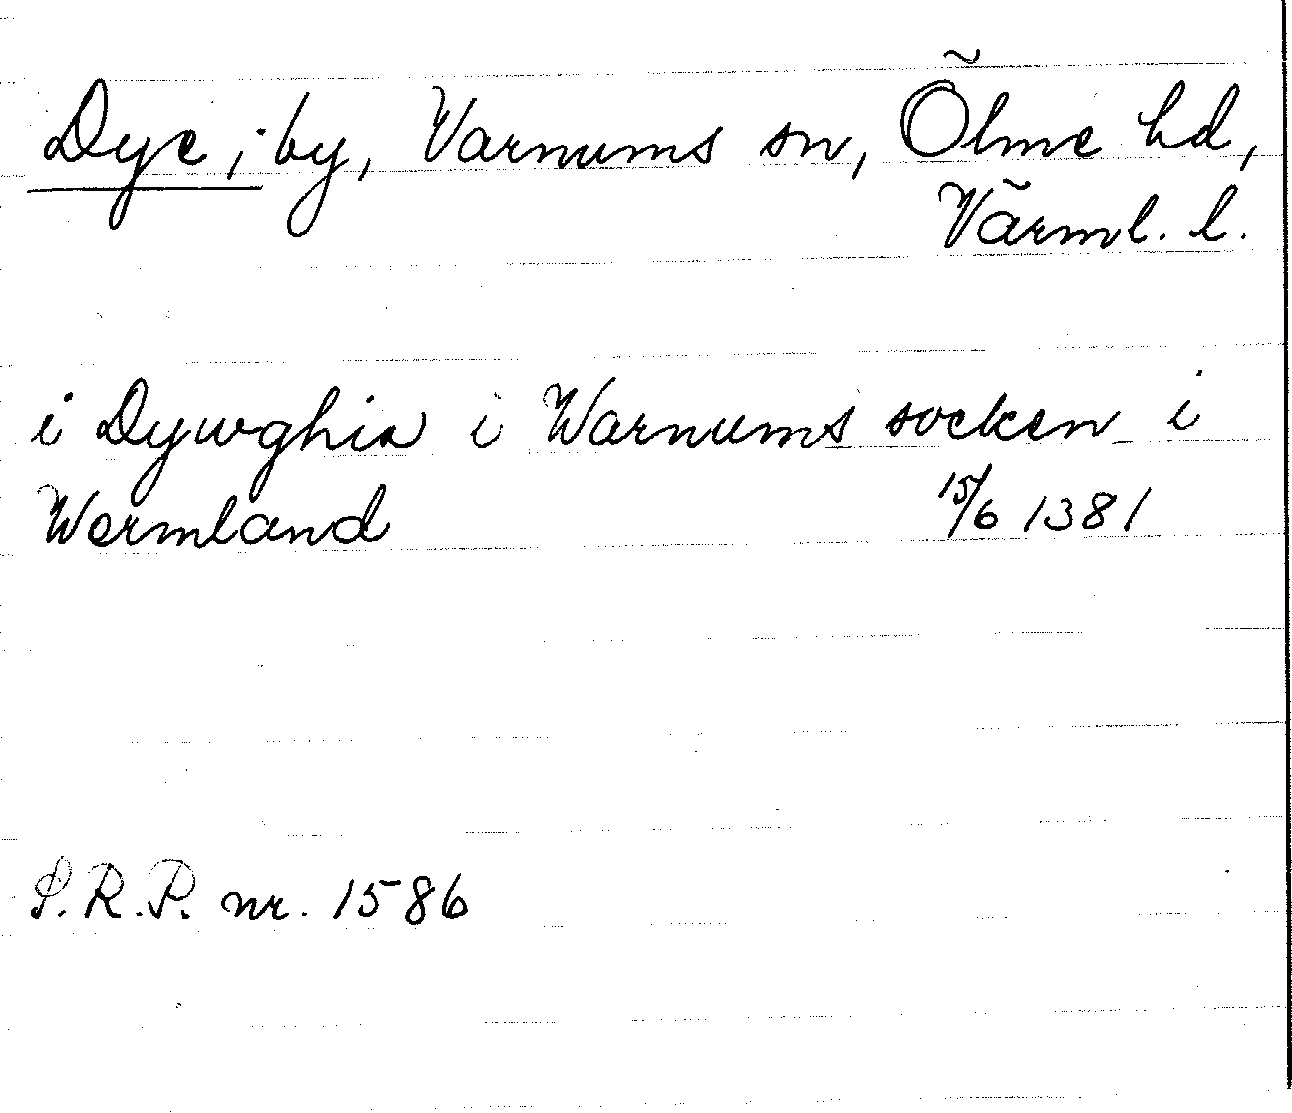 Dye; by, Varnums sn, Ölme hd,
Värml. l.
i Dywghia i Warnums socken i
Wermland 15/6 1381
S.R.P. nr. 1586